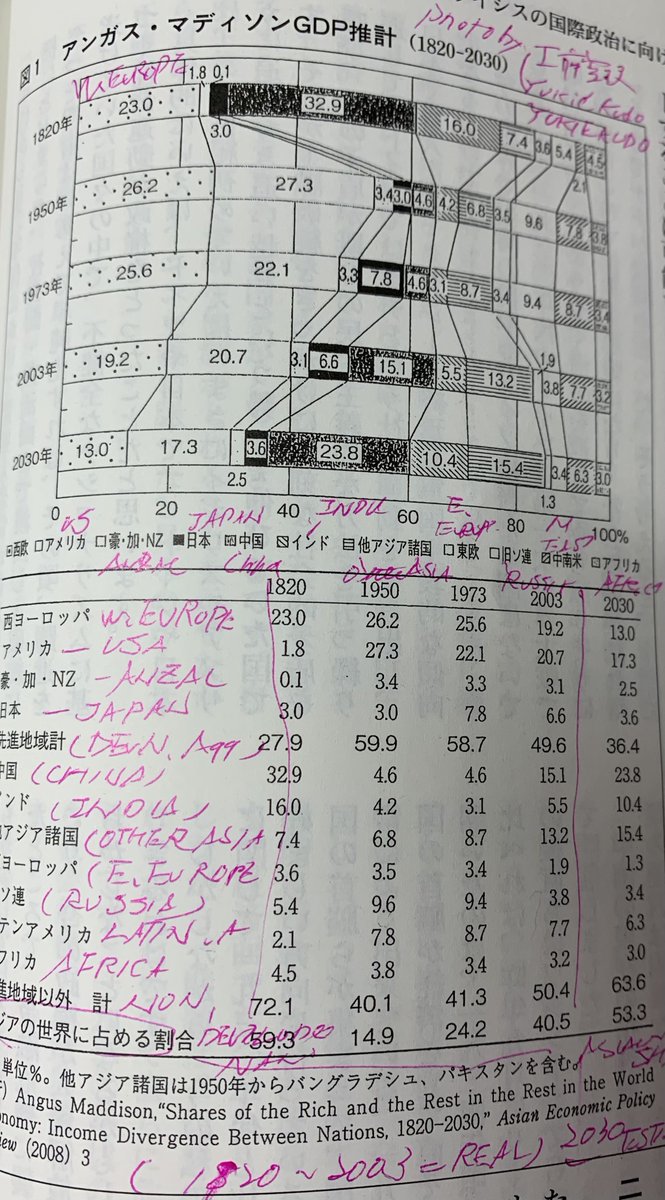 イシスの国際政治に向け
図1 アンガス・マディソンGDP推計 (1820-2030)
photo by
Yukio Kudo
W. EUROPE
YUKIKAUDO
1820年 23.0 1.8 0.1 3.0 32.9 16.0 7.4 3.6 5.4 2.1 4.5
1950年 26.2 27.3 3.4 3.0 4.6 4.2 6.8 3.5 9.6 7.8 3.8
1973年 25.6 22.1 3.3 7.8 4.6 3.1 8.7 3.4 9.4 8.7 3.4
2003年 19.2 20.7 3.1 6.6 15.1 5.5 13.2 1.9 3.8 7.7 3.2
2030年 13.0 17.3 2.5 3.6 23.8 10.4 15.4 1.3 3.4 6.3 3.0
0 20 40 60 80 100%
US JAPAN INDI E. EUROP. M
西欧 アメリカ 豪・加・NZ 日本 中国 インド 他アジア諸国 東欧 旧ソ連 中南米 アフリカ
China ASIA RUSSIA
1820 1950 1973 2003 2030
西ヨーロッパ W. EUROPE 23.0 26.2 25.6 19.2 13.0
アメリカ — USA 1.8 27.3 22.1 20.7 17.3
豪・加・NZ — ANZAC 0.1 3.4 3.3 3.1 2.5
日本 — JAPAN 3.0 3.0 7.8 6.6 3.6
先進地域計 27.9 59.9 58.7 49.6 36.4
中国 (CHINA) 32.9 4.6 4.6 15.1 23.8
ンド (INDIA) 16.0 4.2 3.1 5.5 10.4
アジア諸国 (OTHER ASIA 7.4 6.8 8.7 13.2 15.4
ヨーロッパ (E. EUROPE 3.6 3.5 3.4 1.9 1.3
ソ連 (RUSSIA) 5.4 9.6 9.4 3.8 3.4
テンアメリカ LATIN. A 2.1 7.8 8.7 7.7 6.3
フリカ AFRICA 4.5 3.8 3.4 3.2 3.0
進地域以外 計 NON, 72.1 40.1 41.3 50.4 63.6
ジアの世界に占める割合 59.3 14.9 24.2 40.5 53.3
単位%。他アジア諸国は1950年からバングラデシュ、パキスタンを含む。
) Angus Maddison,“Shares of the Rich and the Rest in the Rest in the World
onomy: Income Divergence Between Nations, 1820-2030,” Asian Economic Policy
view (2008) 3
( 1820 ~ 2003 = REAL) 2030